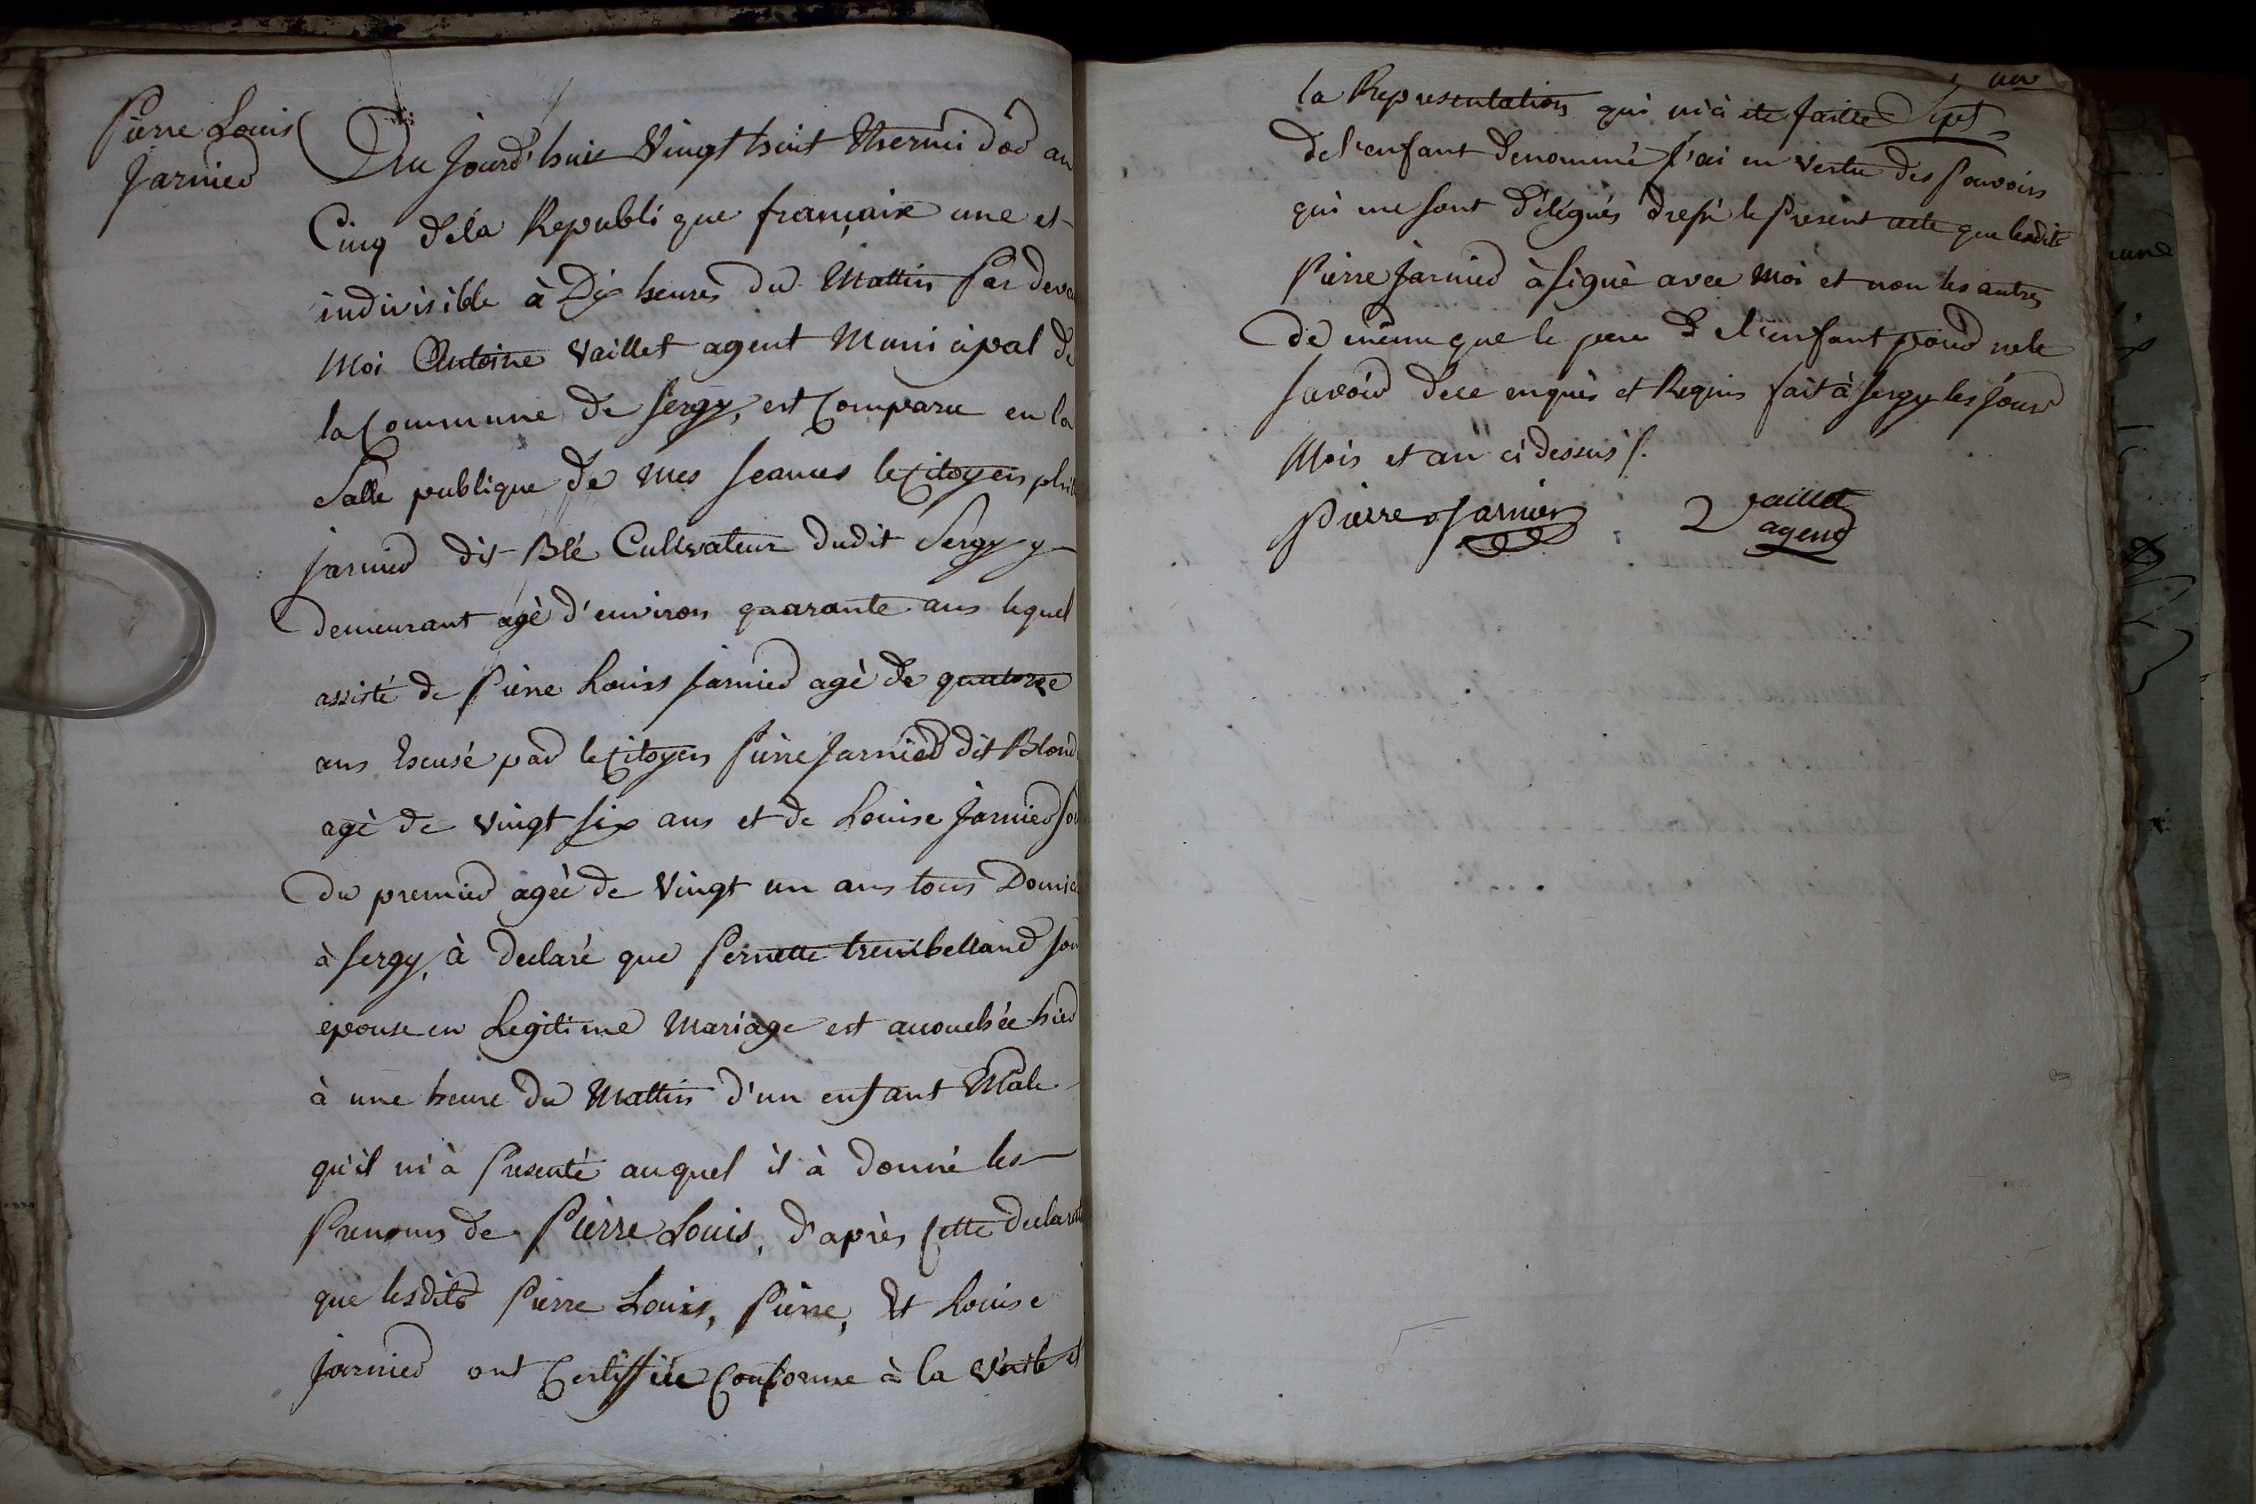 Pierre Louis
Jarnier
Du Jourd'huit Vingt huit Thermidor an
Cinq dela Republique française une et
indivisible à Dix heures du Mattin Par deva
Moi Antoine Vaillet agent Municipal de
la Commune de Sergy, est Comparu en la
Salle publique de mes seances le Citoyen phili
jarnier dit Blé Cultivateur dudit Sergy y
demeurant agé d'environ quarante ans lequel
assisté de Pierre Louis Jarnier agé de quatorze
ans Excusé par le Citoyen Pierre Jarnier dit Blond
agé de vingt six ans et de Louise Jarnier
du premier agée de Vingt un ans tous Domici
à Sergy, à declaré que Pernette treubelland son
epouse en Legitime Mariage est accouchée hier
à une heure du Mattin d'un enfant Male
qu'il m'à Presenté auquel il à donné les
Prenoms de Pierre Louis, d'après Cette declarat
que lesdits Pierre Louis, Pierre, Et Louise
Jarnier ont Certiffiée Conforme à la Verité et
la Representation qui m'à ete faitte Sept
un
de l'enfant denommé J'ai en vertu des Pouvoirs
qui me sont délégués dressé le Present acte que ledit
Pierre Jarnier à signé avec Moi et non les autres
de même que le pere de l'enfant pour ne le
savoir de ce enquis et Requis fait à Sergy les jour
Mois et an ci dessus /.
Pierre Jarnier Vaillet
agent